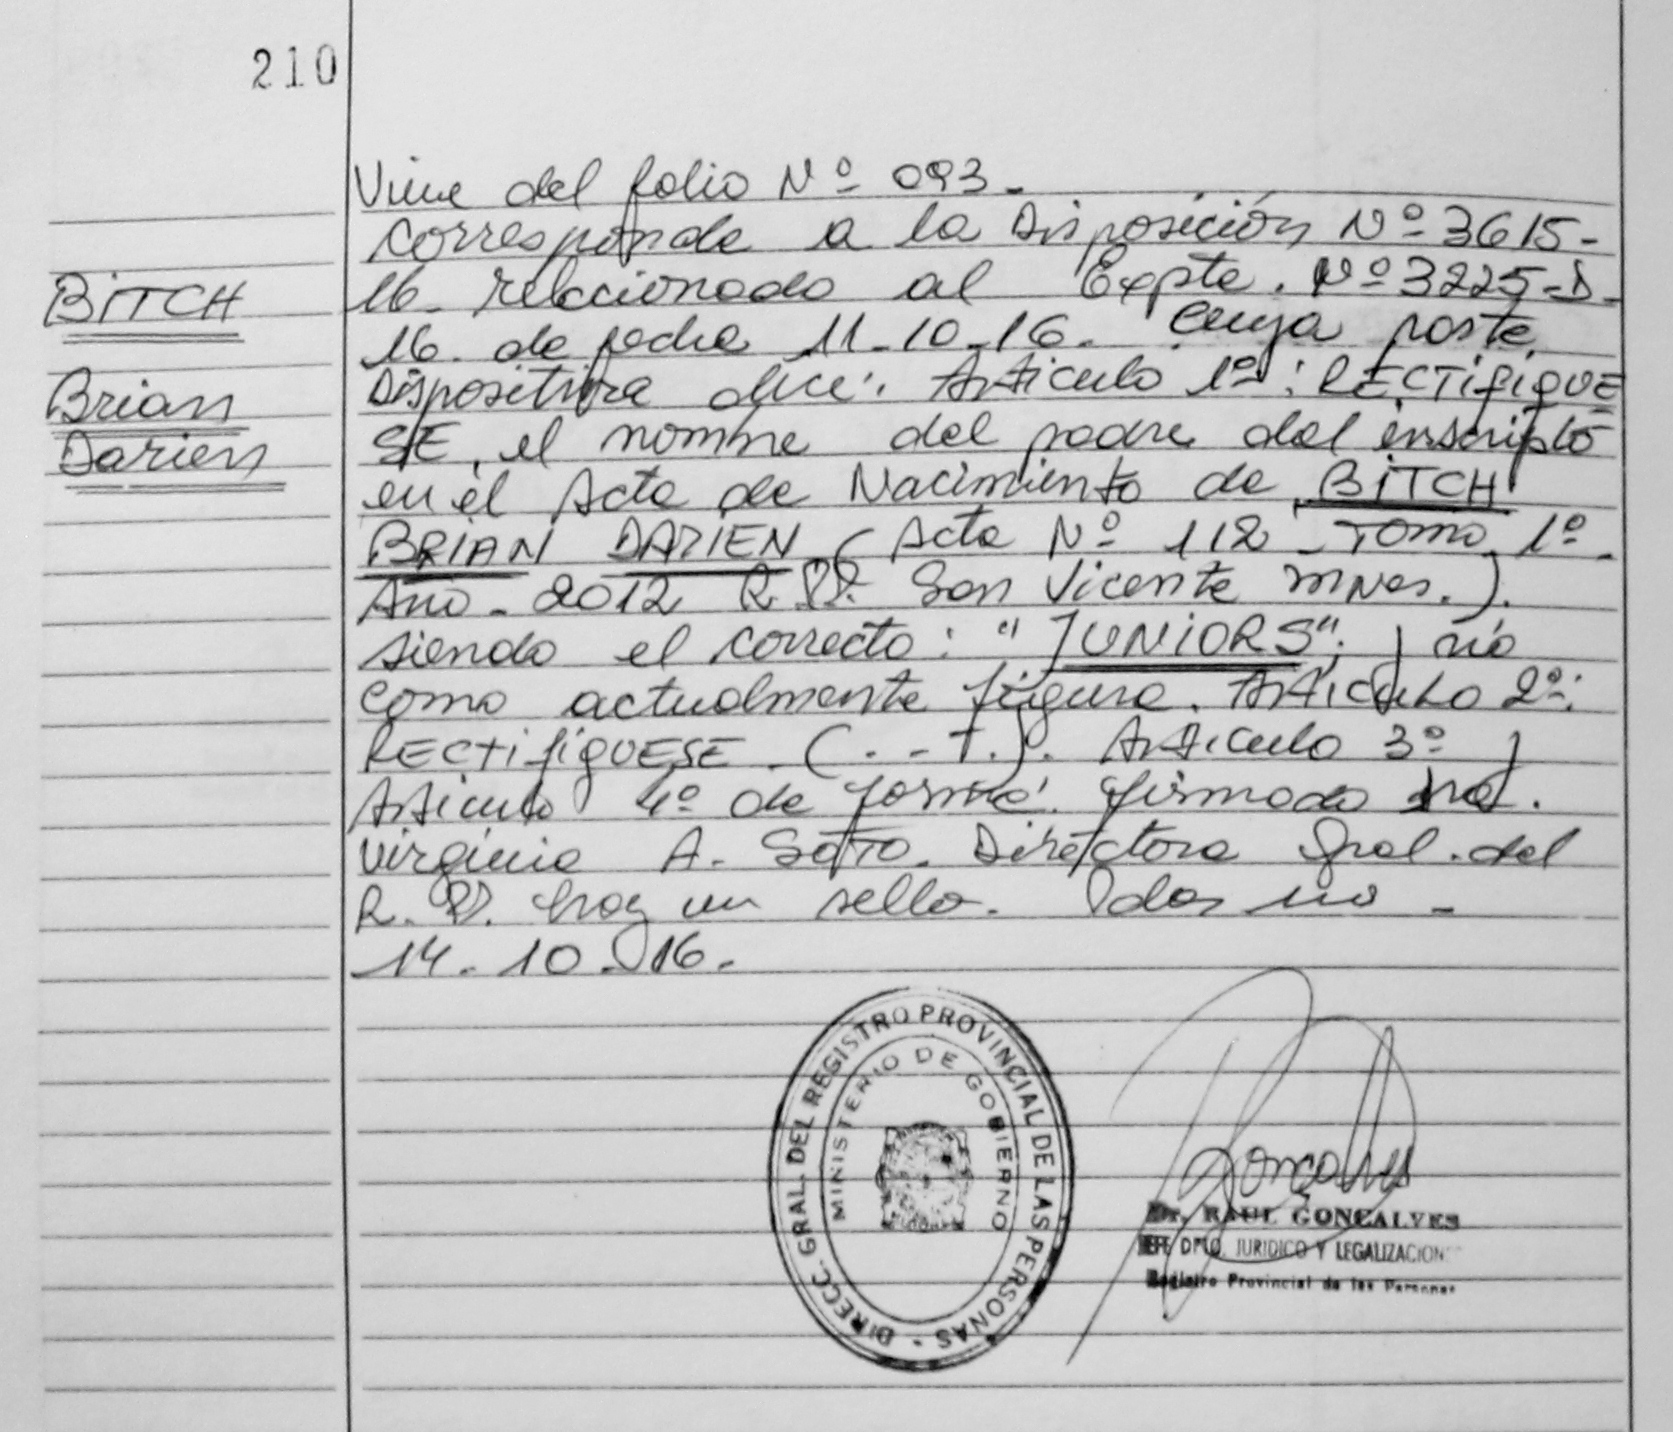 210
Viene del folio Nº 093-
Corresponde a la Disposición Nº 3615-
16- relacionado al Expte. Nº 3225-D-
16. de fecha 11-10-16- Cuya parte
Dispositiva dice: Artículo 1º: RECTIFIQUE
SE, el nombre del padre del inscripto
en el Acta de Nacimiento de BITCH
BRIAN DARIEN (Acta Nº 112 - Tomo 1º-
Año - 2012 R.P.P. San Vicente Mnes.).
siendo el correcto: "JUNIORS"; y no
como actualmente figura. Artículo 2º:
RECTIFIQUESE - (...). Artículo 3º y
Artículo 4º de forma. firmado
Virginia A. Soto. Directora Gral. del
R.P. hay un sello. Pdas
14-10-16-
BITCH
Brian
Darien
DIRECC. GRAL. DEL REGISTRO PROVINCIAL DE LAS PERSONAS -
MINISTERIO DE GOBIERNO
Goncalves
Dr. RAUL GONCALVES
JEFE DPTO. JURIDICO Y LEGALIZACION
Registro Provincial de las Personas